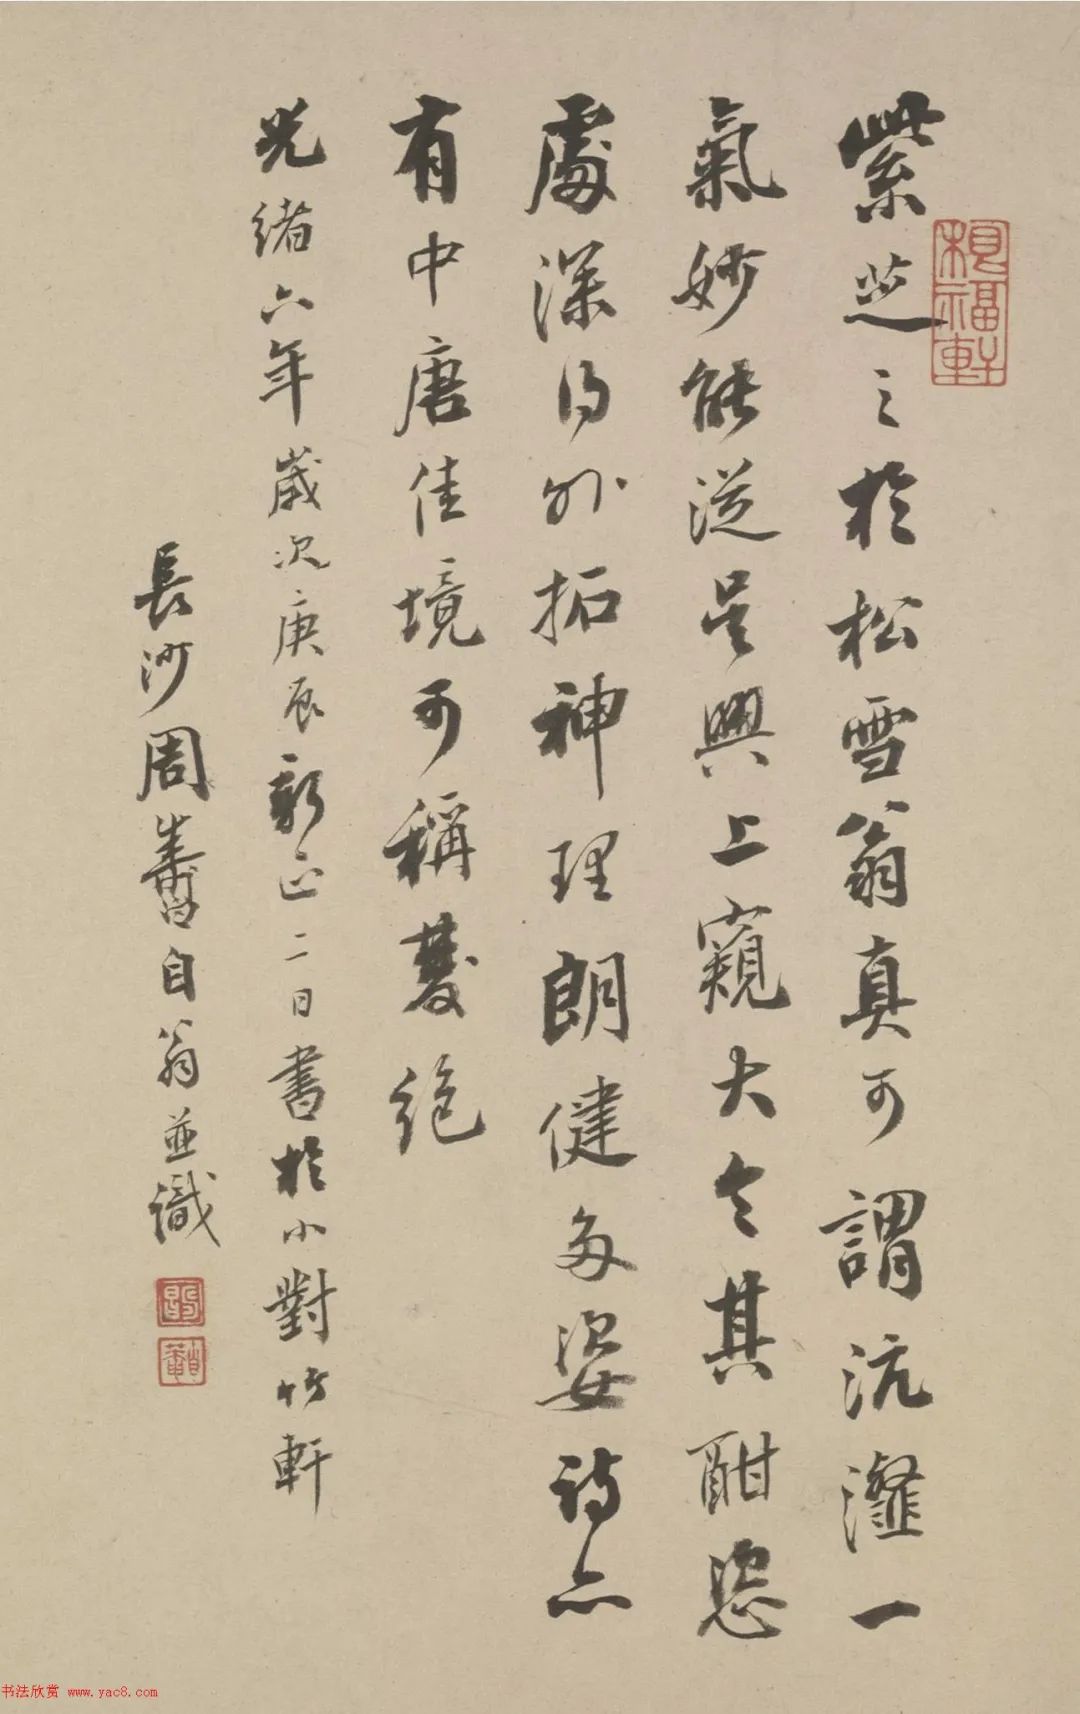 紫芝之於松雪翁真可謂沆瀣一
氣妙能從吳興上窺大令其酣恣
處深得外拓神理朗健多姿詩亦
有中唐佳境可稱雙絕
光緒六年歲次庚辰新正二日書於小對竹軒
長沙周壽昌自翁並識
書法欣赏 www.yac8.com